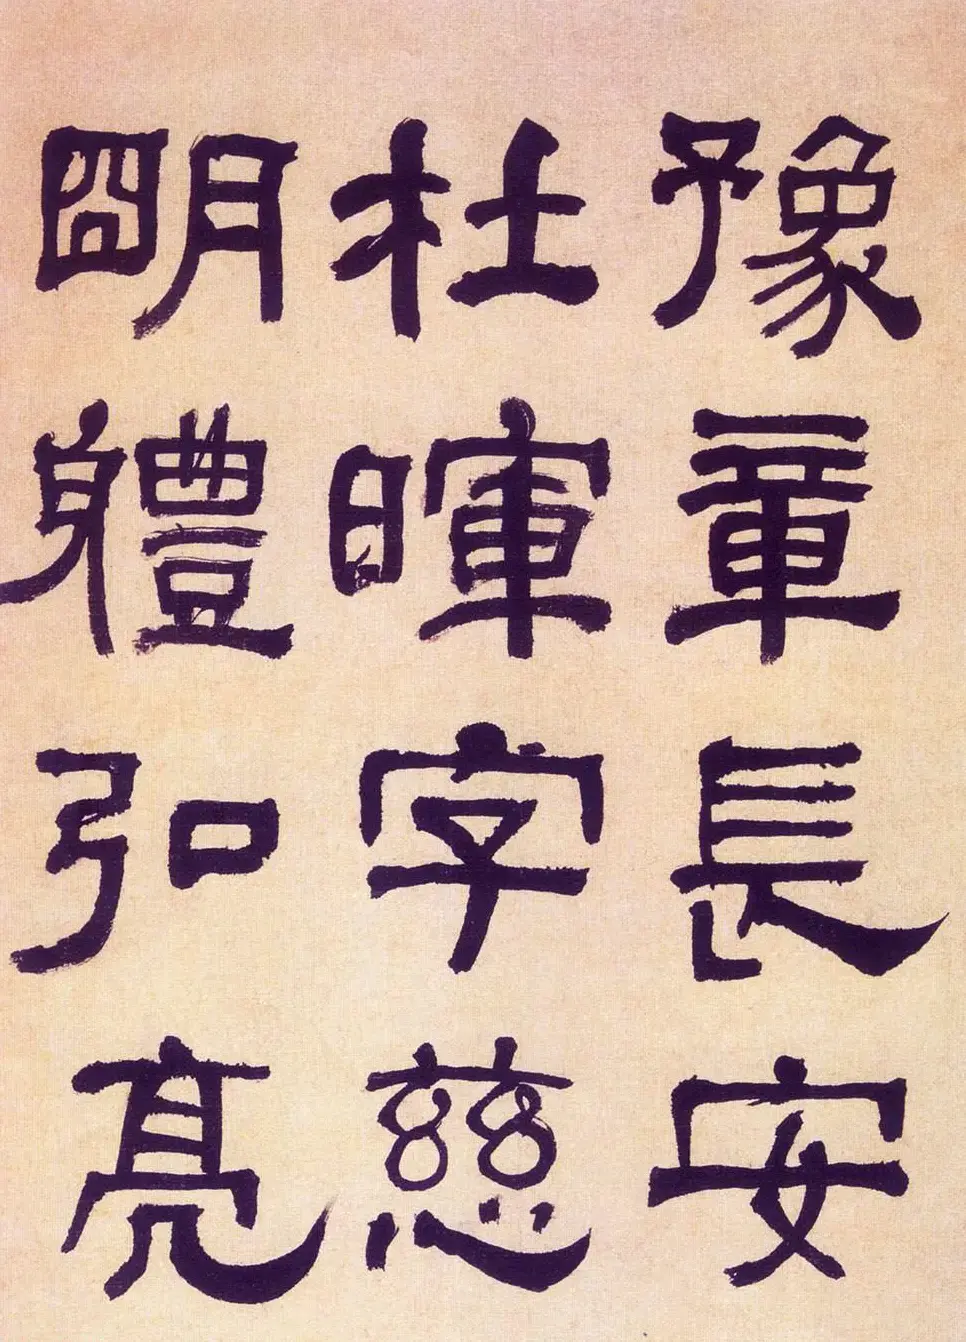 豫章長安
杜暉字慈
朙軆弘亮